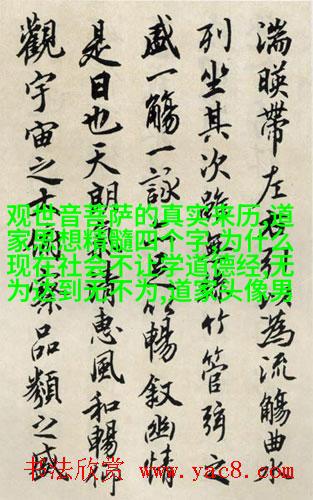 湍暎帶左右引以為流觴曲水
列坐其次雖無絲竹管弦之
盛一觴一詠亦足以暢敘幽情
是日也天朗氣清惠風和暢仰
觀宇宙之大俯察品類之盛
观世音菩萨的真实来历,道
家思想精髓四个字,为什么
现在社会不让学道德经,无
为达到无不为,道家头像男
书法欣赏 www.yac8.com